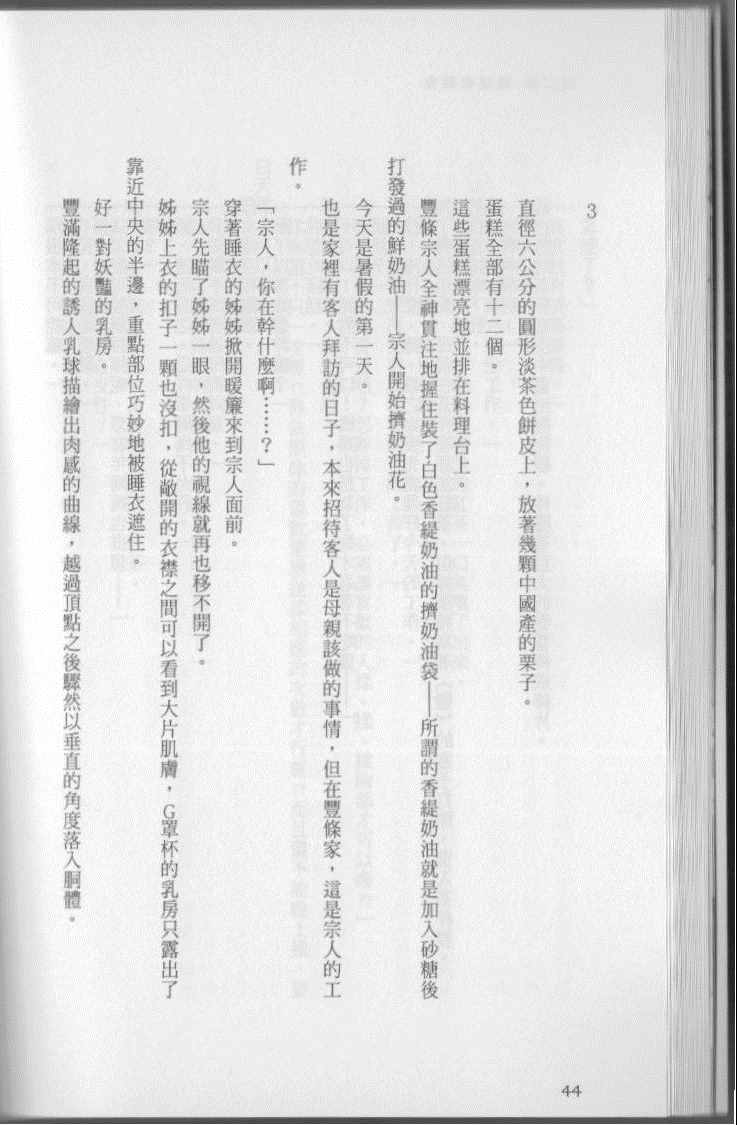 3
直徑六公分的圓形淡茶色餅皮上，放著幾顆中國產的栗子。
蛋糕全部有十二個。
這些蛋糕漂亮地並排在料理台上。
豐條宗人全神貫注地握住裝了白色香緹奶油的擠奶油袋——所謂的香緹奶油就是加入砂糖後
打發過的鮮奶油——宗人開始擠奶油花。
今天是暑假的第一天。
也是家裡有客人拜訪的日子，本來招待客人是母親該做的事情，但在豐條家，這是宗人的工
作。
「宗人，你在幹什麼啊……？」
穿著睡衣的姊姊掀開暖簾來到宗人面前。
宗人先瞄了姊姊一眼，然後他的視線就再也移不開了。
姊姊上衣的扣子一顆也沒扣，從敞開的衣襟之間可以看到大片肌膚，G罩杯的乳房只露出了
靠近中央的半邊，重點部位巧妙地被睡衣遮住。
好一對妖豔的乳房。
豐滿隆起的誘人乳球描繪出肉感的曲線，越過頂點之後驟然以垂直的角度落入胴體。
44